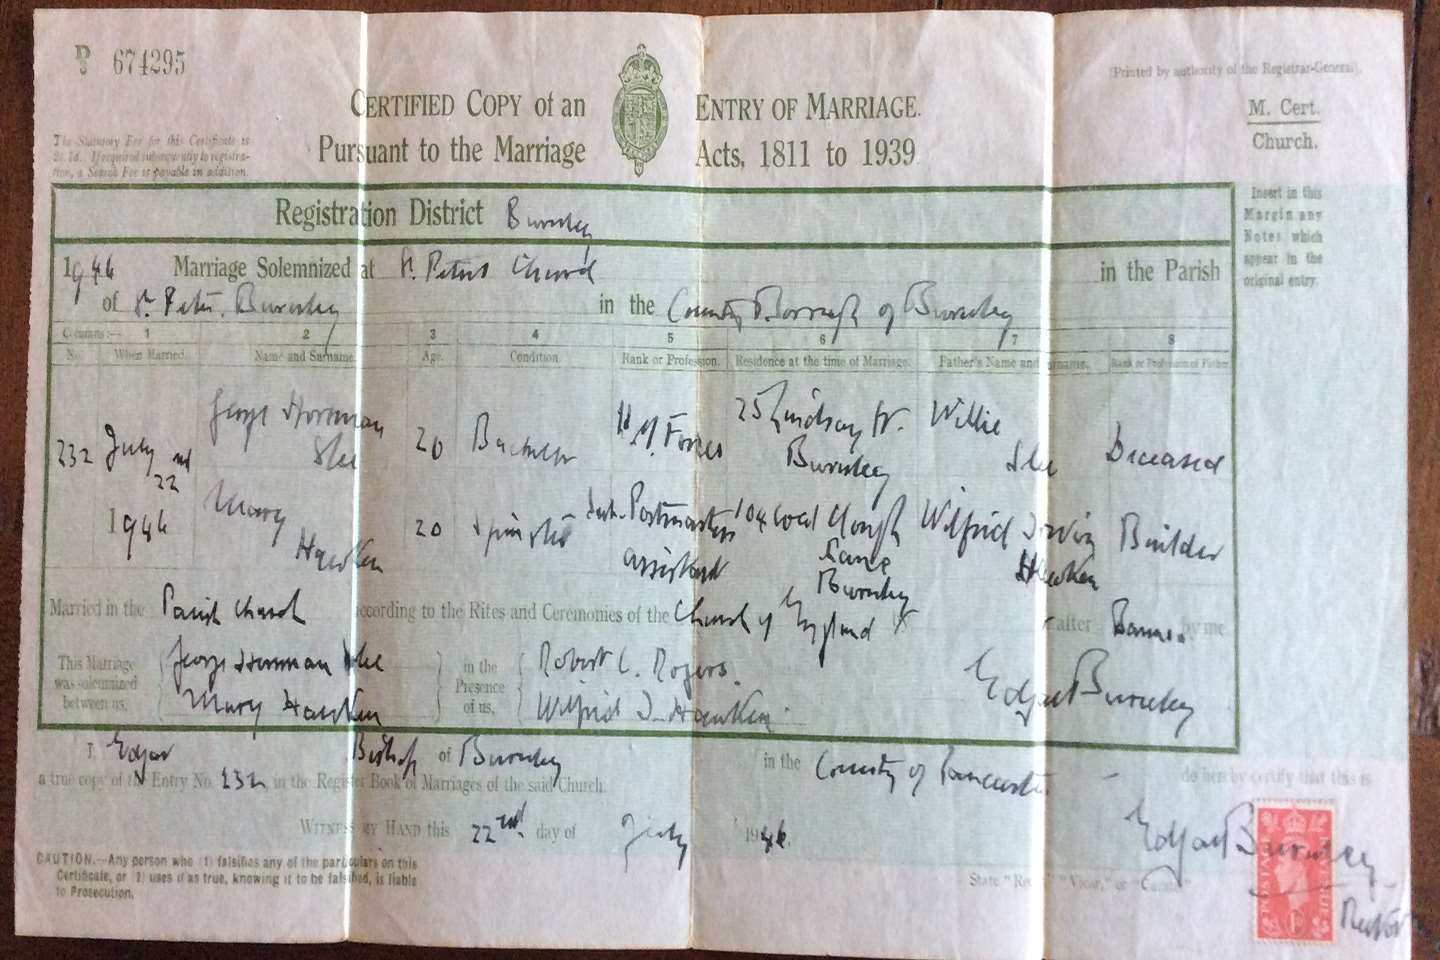 D/S 674295
(Printed by authority of the Registrar-General).
CERTIFIED COPY of an ENTRY OF MARRIAGE.
Pursuant to the Marriage Acts, 1811 to 1939
M. Cert.
Church.
The Statutory Fee for this Certificate is
2s. 7d. If required subsequently to registra-
tion, a Search Fee is payable in addition.
Insert in this
Margin any
Notes which
appear in the
original entry.
Registration District Burnley
1946 Marriage Solemnized at St. Peters Church in the Parish
of St. Peter, Burnley in the County Borough of Burnley
Columns:— 1 2 3 4 5 6 7 8
No. When Married. Name and Surname. Age. Condition. Rank or Profession. Residence at the time of Marriage. Father's Name and Surname. Rank or Profession of Father
232 July 22nd 1946
George Horsman Slee 20 Bachelor H.M. Forces 25 Lindsay St. Burnley Willie Slee Deceased
Mary Hawken 20 Spinster Postmasters assistant 104 Coal Clough Lane Burnley Wilfrid Irwin Hawken Builder
Married in the Parish Church according to the Rites and Ceremonies of the Church of England after Banns by me,
This Marriage was solemnized between us, George Horsman Slee Mary Hawken in the Presence of us, Robert C. Rogers. Wilfrid I. Hawken Edgar Burnley
I, Edgar Bishop of Burnley in the County of Lancaster do hereby certify that this is
a true copy of the Entry No. 232, in the Register Book of Marriages of the said Church.
WITNESS MY HAND this 22nd day of July 1946.
Edgar Burnley
Rector
CAUTION.—Any person who (1) falsifies any of the particulars on this
Certificate, or (2) uses it as true, knowing it to be falsified, is liable
to Prosecution.
State "Rector," "Vicar," or "Curate"
POSTAGE 1D REVENUE